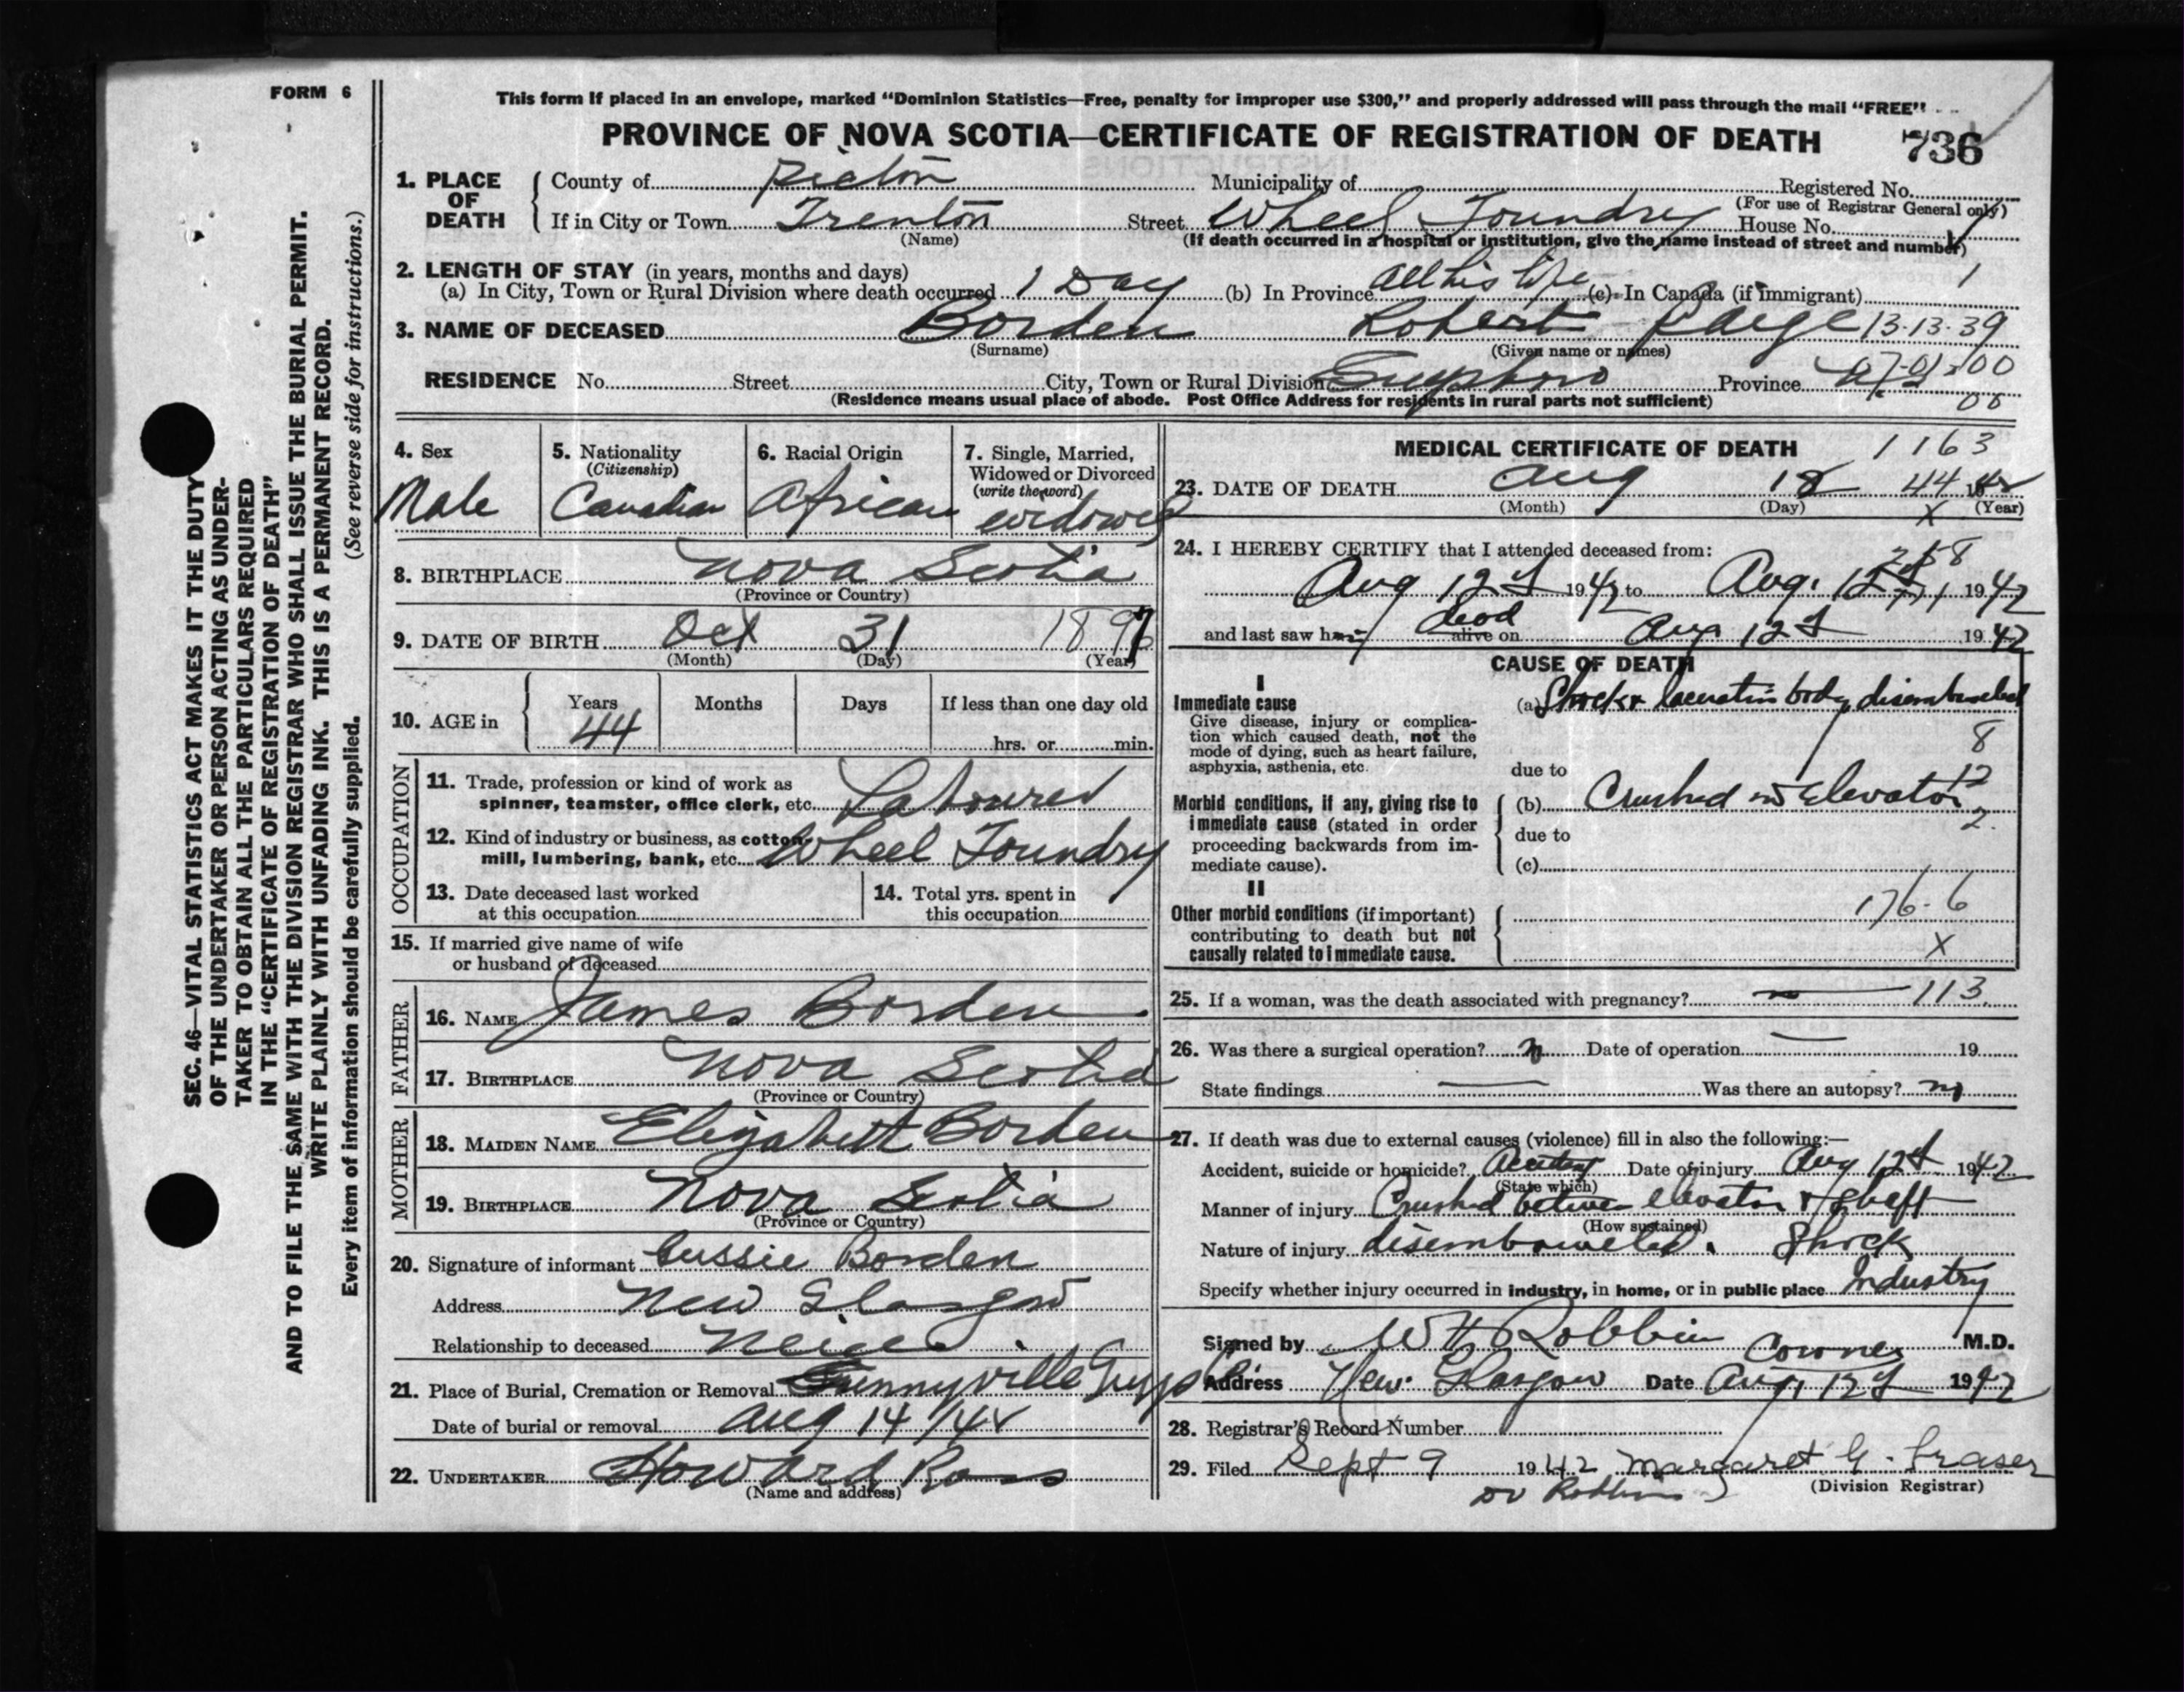 FORM 6
This form if placed in an envelope, marked “Dominion Statistics—Free, penalty for improper use $300,” and properly addressed will pass through the mail “FREE”
PROVINCE OF NOVA SCOTIA—CERTIFICATE OF REGISTRATION OF DEATH 736
1. PLACE OF DEATH
County of Pictou Municipality of Registered No.
(For use of Registrar General only)
If in City or Town Trenton Street Wheel Foundry House No.
(Name) (If death occurred in a hospital or institution, give the name instead of street and number)
2. LENGTH OF STAY (in years, months and days)
(a) In City, Town or Rural Division where death occurred 1 Day (b) In Province All his life (c) In Canada (if immigrant) 1
3. NAME OF DECEASED Borden Robert Paige 13-13-39
(Surname) (Given name or names)
RESIDENCE No. Street City, Town or Rural Division Guysboro Province
00
(Residence means usual place of abode. Post Office Address for residents in rural parts not sufficient)
4. Sex
Male
5. Nationality
(Citizenship)
Canadian
6. Racial Origin
African
7. Single, Married,
Widowed or Divorced
(write the word)
widowed
8. BIRTHPLACE Nova Scotia
(Province or Country)
9. DATE OF BIRTH Oct 31 1897
(Month) (Day) (Year)
10. AGE in Years Months Days If less than one day old
44 hrs. or min.
OCCUPATION
11. Trade, profession or kind of work as
spinner, teamster, office clerk, etc. Labourer
12. Kind of industry or business, as cotton-
mill, lumbering, bank, etc. Wheel Foundry
13. Date deceased last worked
at this occupation
14. Total yrs. spent in
this occupation
15. If married give name of wife
or husband of deceased
FATHER
16. NAME James Borden
17. BIRTHPLACE Nova Scotia
(Province or Country)
MOTHER
18. MAIDEN NAME Elizabeth Borden
19. BIRTHPLACE Nova Scotia
(Province or Country)
20. Signature of informant Gussie Borden
Address New Glasgow
Relationship to deceased Neice
21. Place of Burial, Cremation or Removal Sunnyville Guys
Date of burial or removal Aug 14/42
22. UNDERTAKER Howard Ross
(Name and address)
MEDICAL CERTIFICATE OF DEATH 1163
23. DATE OF DEATH Aug 12 44 1942
(Month) (Day) X (Year)
24. I HEREBY CERTIFY that I attended deceased from:
Aug 12 1942 to Aug. 12 1942
and last saw him dead alive on Aug 12 1942
CAUSE OF DEATH
I
Immediate cause
Give disease, injury or complica-
tion which caused death, not the
mode of dying, such as heart failure,
asphyxia, asthenia, etc.
(a) Shock & laceration body, disembowelled
8
due to
12
Morbid conditions, if any, giving rise to
immediate cause (stated in order
proceeding backwards from im-
mediate cause).
(b) Crushed in Elevator
2
due to
(c)
II
Other morbid conditions (if important)
contributing to death but not
causally related to immediate cause.
176-6
X
25. If a woman, was the death associated with pregnancy? 113
26. Was there a surgical operation? no Date of operation 19
State findings Was there an autopsy? no
27. If death was due to external causes (violence) fill in also the following:—
Accident, suicide or homicide? Accident Date of injury Aug 12 1942
(State which)
Manner of injury Crushed between elevator & shaft
(How sustained)
Nature of injury disembowelled. Shock
Specify whether injury occurred in industry, in home, or in public place Industry
Signed by W H Robbins Coroner M.D.
Address New Glasgow Date Aug, 12 1942
28. Registrar's Record Number
29. Filed Sept 9 1942 Margaret G. Fraser
Dr Robbins (Division Registrar)
SEC. 46—VITAL STATISTICS ACT MAKES IT THE DUTY
OF THE UNDERTAKER OR PERSON ACTING AS UNDER-
TAKER TO OBTAIN ALL THE PARTICULARS REQUIRED
IN THE “CERTIFICATE OF REGISTRATION OF DEATH”
AND TO FILE THE SAME WITH THE DIVISION REGISTRAR WHO SHALL ISSUE THE BURIAL PERMIT.
WRITE PLAINLY WITH UNFADING INK. THIS IS A PERMANENT RECORD.
Every item of information should be carefully supplied. (See reverse side for instructions.)